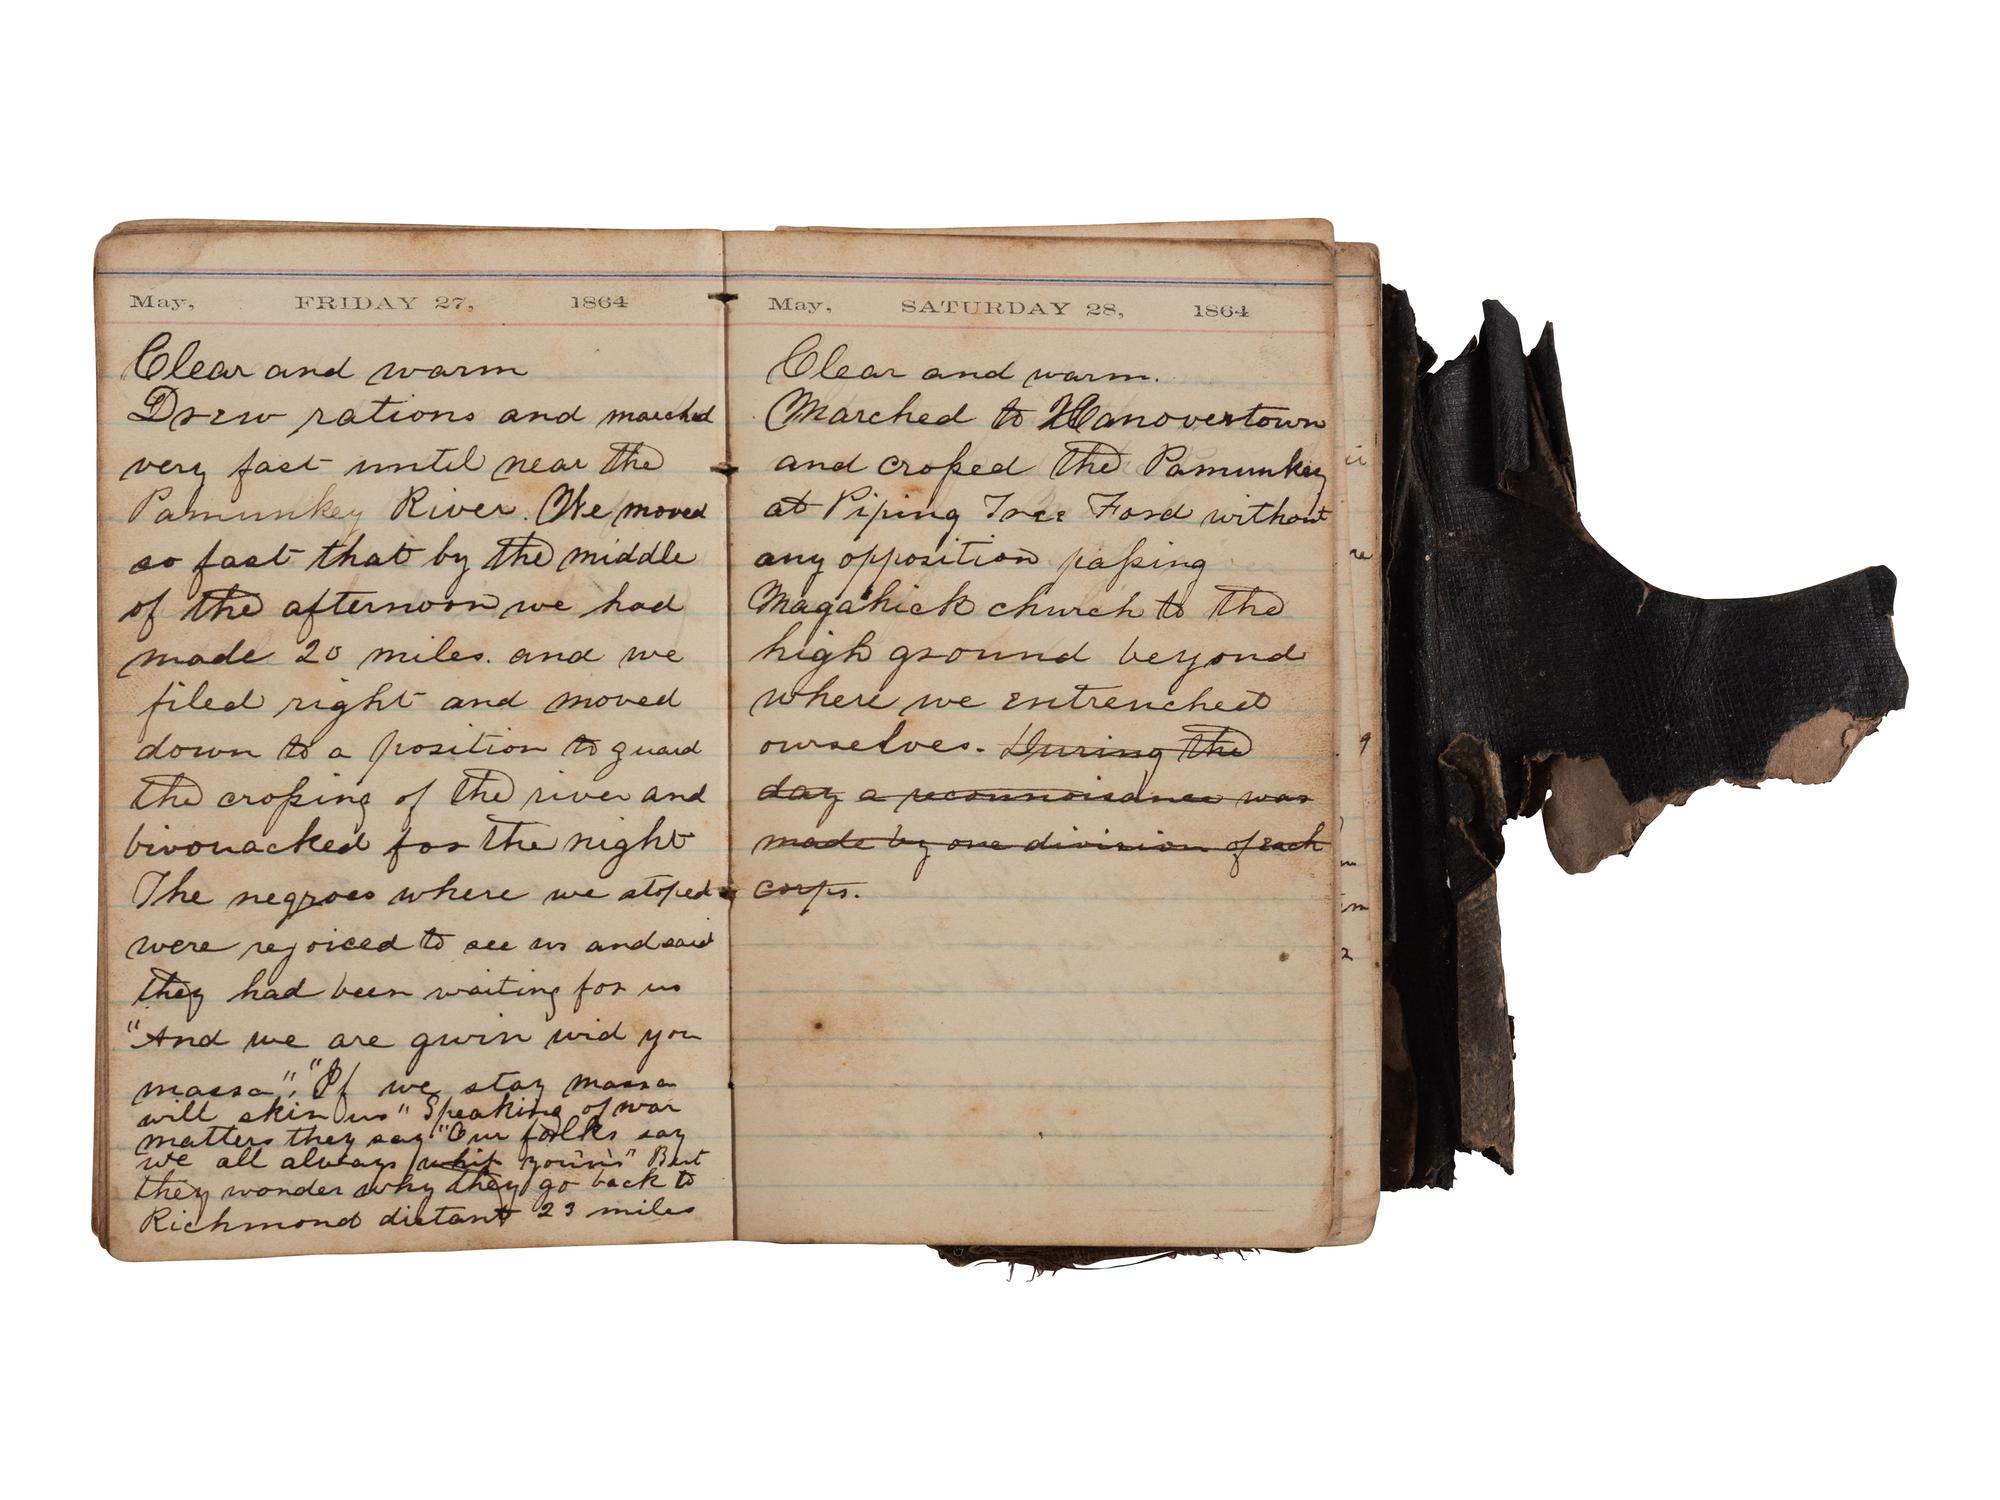 May, FRIDAY 27, 1864
Clear and warm
Drew rations and marched
very fast until near the
Pamunkey River. We moved
so fast that by the middle
of the afternoon we had
made 20 miles. and we
filed right and moved
down to a position to guard
the croſsing of the river and
bivouacked for the night
The negroes where we stoped
were rejoiced to see us and said
they had been waiting for us
"And we are gwin wid you
massa", "If we stay massa
will skin us" Speaking of war
matters they say "Our folks say
we all always whip youn's" But
they wonder why they go back to
Richmond distant 23 miles
May, SATURDAY 28, 1864
Clear and warm.
Marched to Hanovertown
and croſsed the Pamunkey
at Piping Tree Ford without
any opposition paſsing
Magahick church to the
high ground beyond
where we entrenched
ourselves. During the
day a reconnoisance was
made by one division of each
corps.